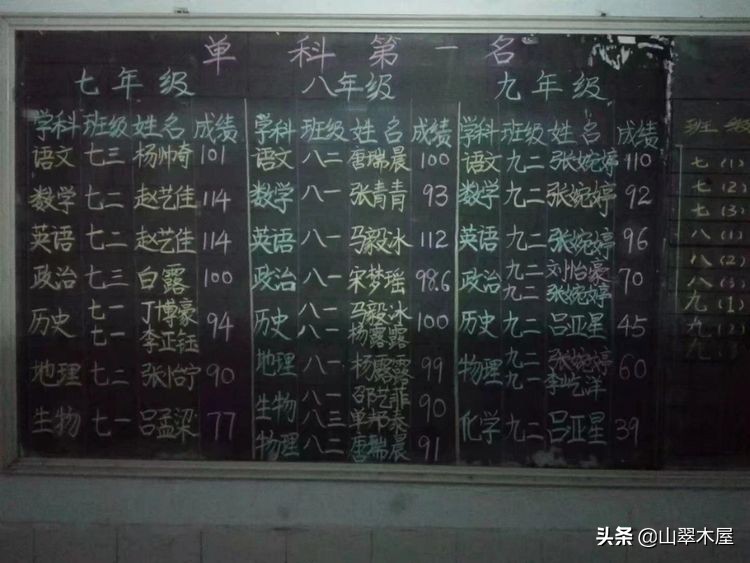 单科第一名
七年级 八年级 九年级
学科 班级 姓名 成绩 学科 班级 姓名 成绩 学科 班级 姓名 成绩 班级
语文 七三 杨帅奇 101 语文 八二 唐瑞晨 100 语文 九二 张婉婷 110 七(1)
数学 七二 赵艺佳 114 数学 八一 张青青 93 数学 九二 张婉婷 92 七(2)
七(3)
英语 七二 赵艺佳 114 英语 八一 马毅冰 112 英语 九二 张婉婷 96 八(1)
政治 七三 白露 100 政治 八一 宋梦瑶 98.6 政治 九二 刘怡豪 70 八(2)
九二 张婉婷 八(3)
历史 七一 丁博豪 94 历史 八一 马毅冰 100 历史 九二 吕亚星 45 九(1)
七一 李正钰 八一 杨露露 九(2)
地理 七二 张怡宁 90 地理 八一 杨露露 99 物理 九二 张婉婷 60 九(3)
九一 李屹洋
生物 七一 吕孟梁 77 生物 八一 邵艺菲 90 化学 九二 吕亚星 39
八三 单邦泰
物理 八二 唐瑞晨 91
头条 @山翠木屋